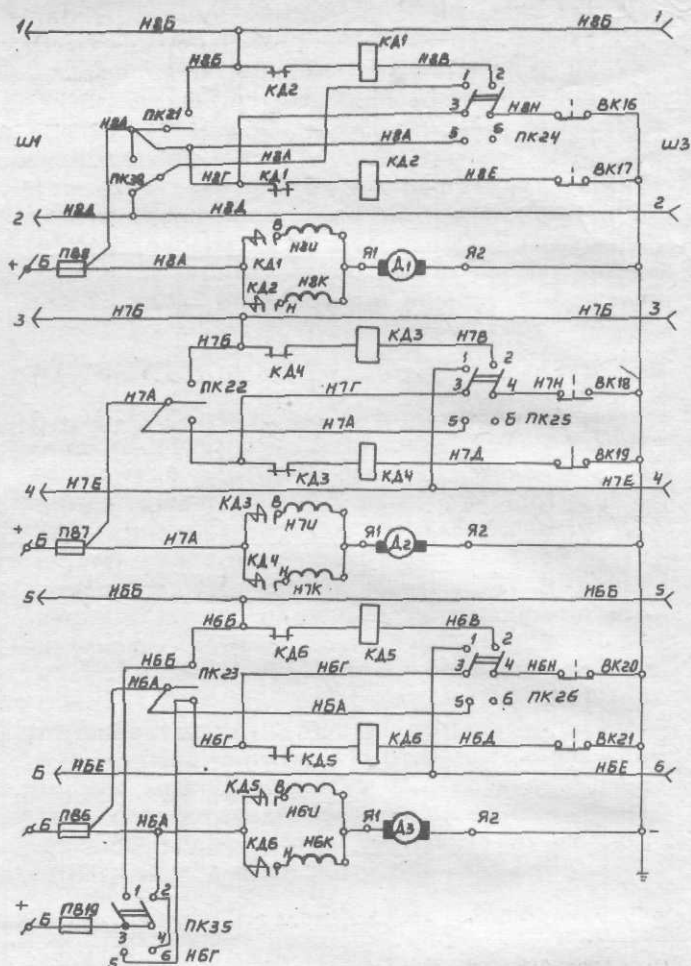 1 Н8Б Н8Б 1
Н8Б КД1 Н8В
КД2 1 2
ПК21 3 Н8Н ВК16
ш1 Н8А Н8А 5 6 ПК24 ш3
Н8А КД2
ПК38 Н8Г КД1 Н8Е ВК17
2 Н8Д Н8Д 2
В Н8И
+ Б ПВ8 Н8А КД1 Я1 Д1 Я2
КД2 Н8К
Н
3 Н7Б Н7Б 3
Н7Б КД3 Н7В
КД4 1 2
ПК22 Н7Г 3 4 Н7Н ВК18
Н7А Н7А 5 Б ПК25
КД3 КД4 Н7Д ВК19
4 Н7Е Н7Е 4
КД3 В Н7И
+ Б ПВ7 Н7А Я1 Д2 Я2
КД4 Н Н7К
5 Н6Б Н6Б 5
Н6Б КД6 КД5 Н6В
1 2
Н6Б ПК23 Н6Г 3 4 Н6Н ВК20
Н6А Н6А 5 6 ПК26
Н6Г КД5 КД6 Н6Д ВК21
Б Н6Е Н6Е 6
КД5 В Н6И
Б ПВ6 Н6А Я1 Д3 Я2 -
КД6 Н Н6К
1 2
+ Б ПВ19 ПК35
3 4
5 6 Н6Г